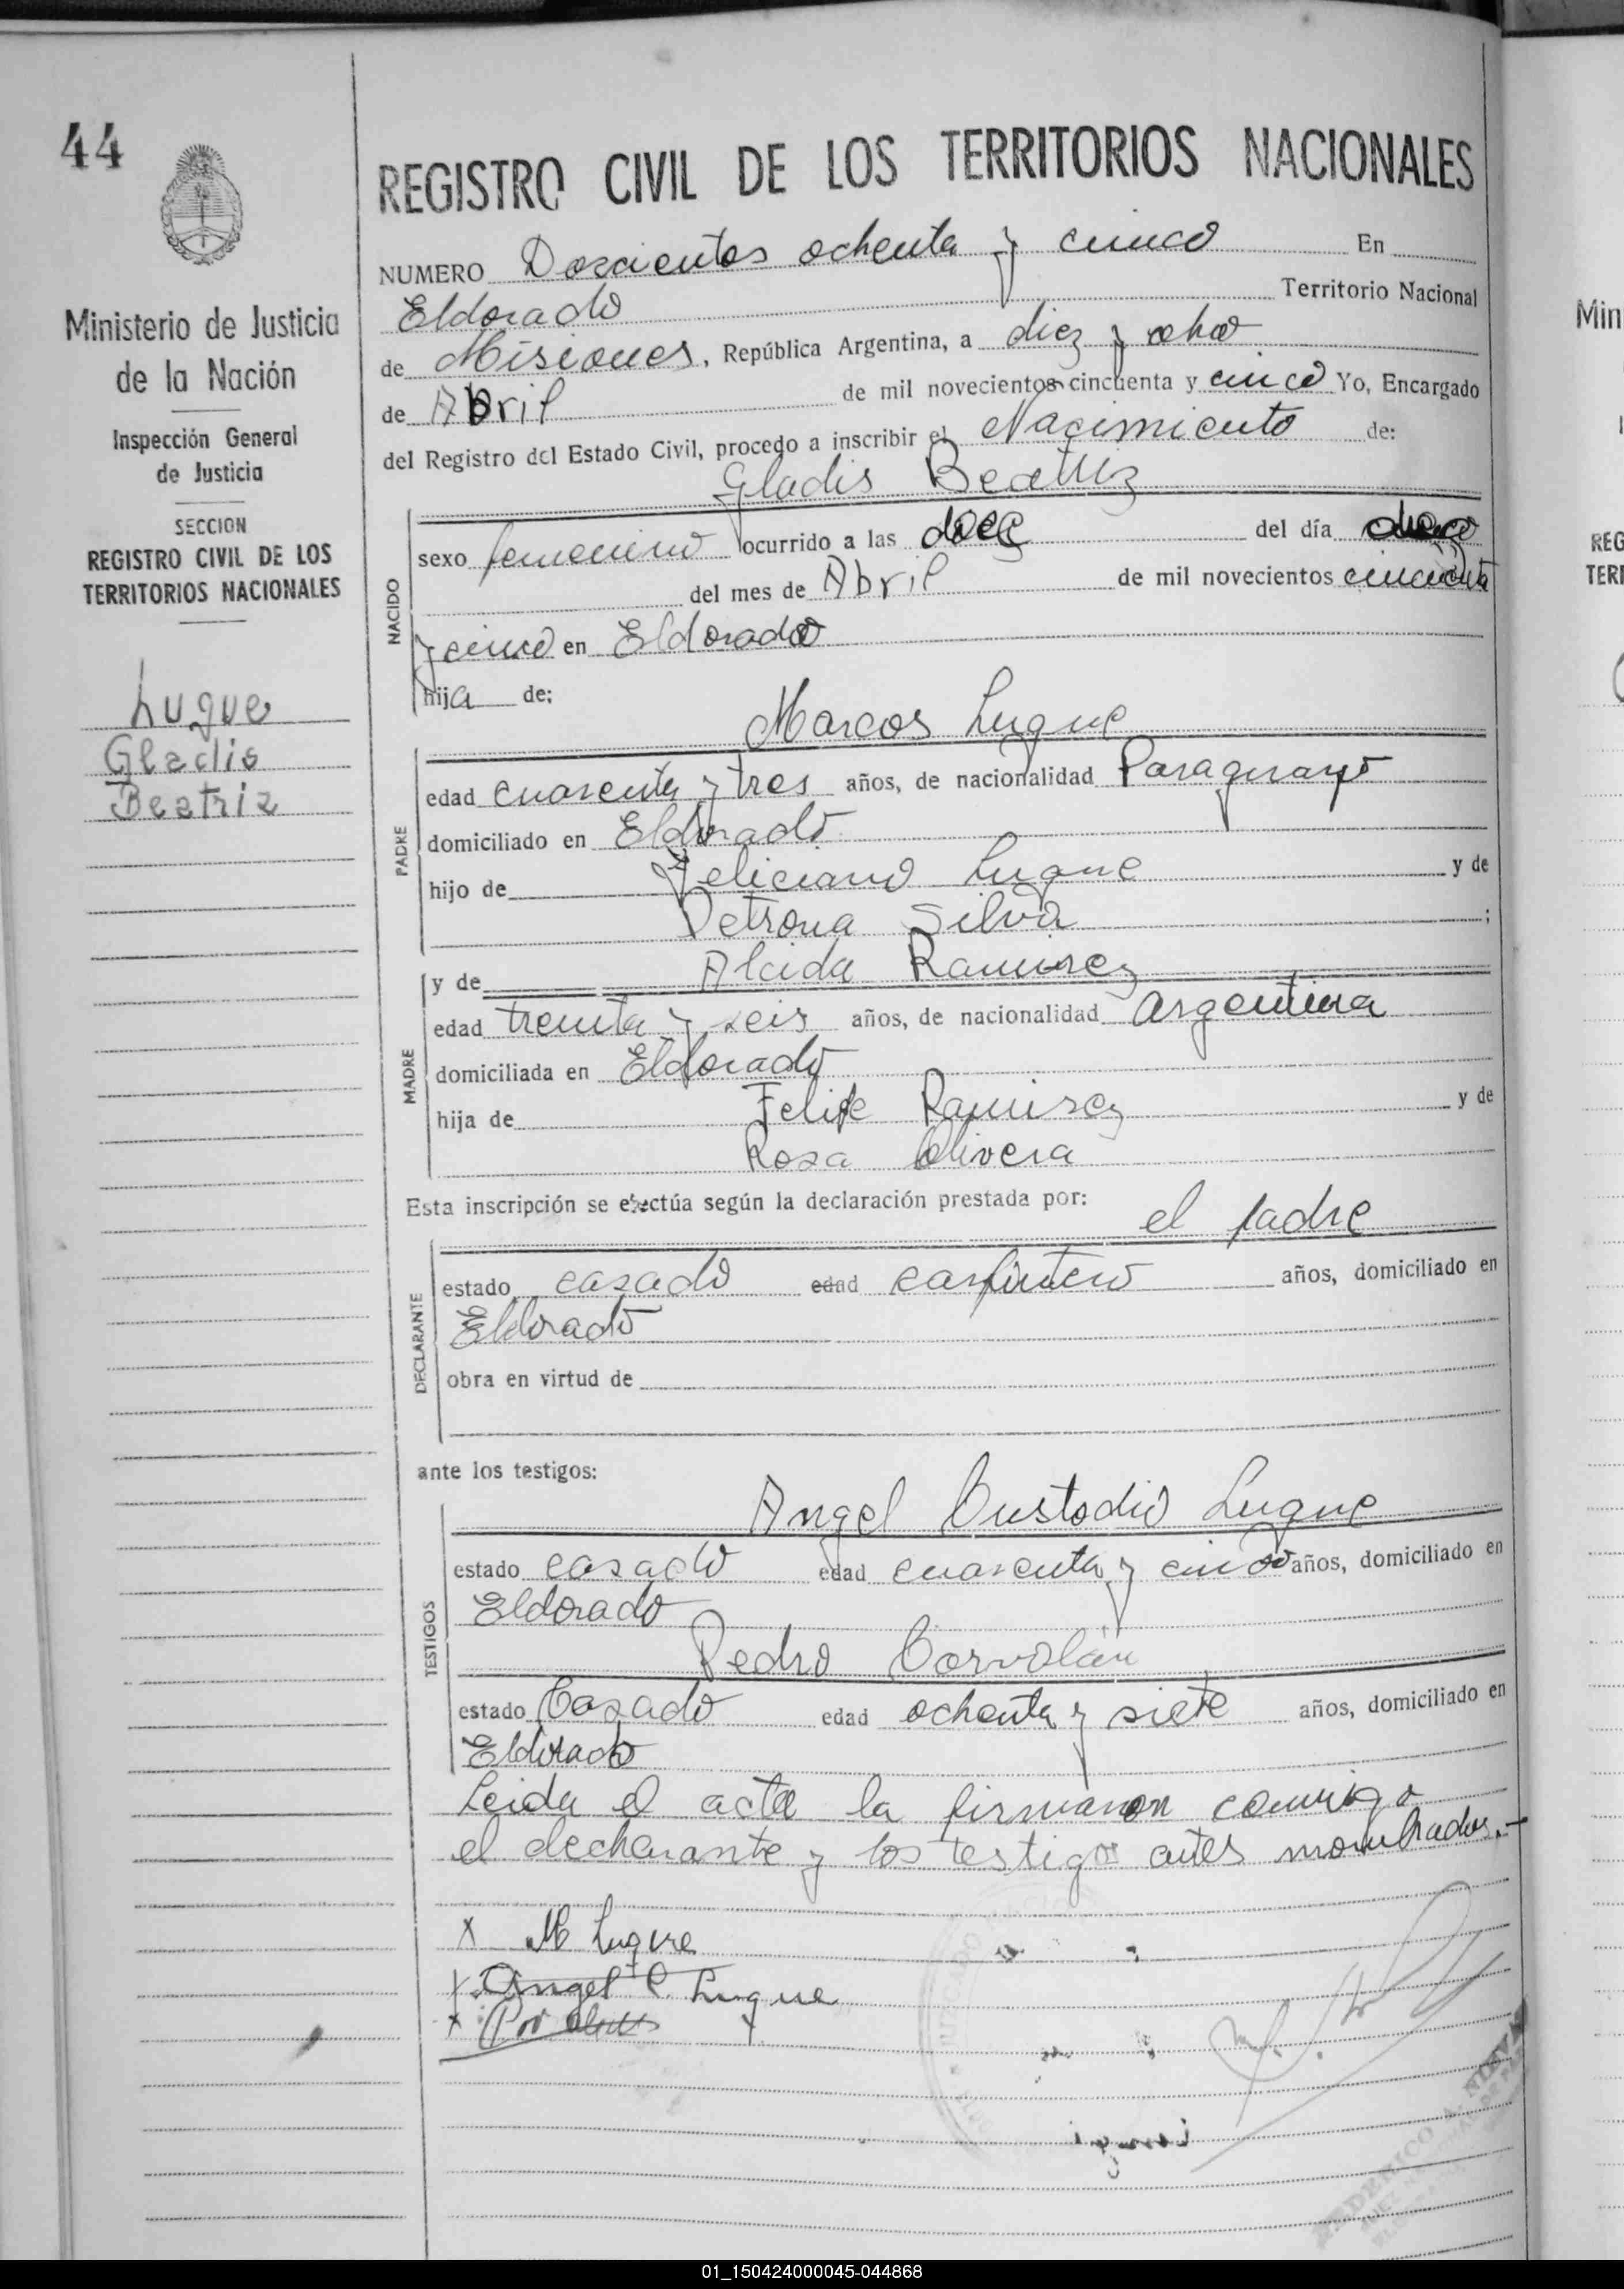 44
REGISTRO CIVIL DE LOS TERRITORIOS NACIONALES
Ministerio de Justicia
de la Nación
Inspección General
de Justicia
SECCION
REGISTRO CIVIL DE LOS
TERRITORIOS NACIONALES
Luque
Gladis
Beatriz
NUMERO Doscientos ochenta y cinco En
Eldorado Territorio Nacional
de Misiones, República Argentina, a diez y ocho
de Abril de mil novecientos cincuenta y cinco Yo, Encargado
del Registro del Estado Civil, procedo a inscribir el Nacimiento de:
Gladis Beatriz
NACIDO
sexo femenino ocurrido a las doce del día
del mes de Abril de mil novecientos cincuenta
y cinco en Eldorado
hija de:
Marcos Luque
PADRE
edad cuarenta y tres años, de nacionalidad Paraguayo
domiciliado en Eldorado
hijo de Feliciano Luque y de
Petrona Silva ;
y de Alcida Ramirez
MADRE
edad treinta y seis años, de nacionalidad argentina
domiciliada en Eldorado
hija de Felipe Ramirez y de
Rosa Olivera
Esta inscripción se efectúa según la declaración prestada por:
el padre
DECLARANTE
estado casado edad carpintero años, domiciliado en
Eldorado
obra en virtud de
ante los testigos:
Angel Custodio Luque
TESTIGOS
estado casado edad cuarenta y cinco años, domiciliado en
Eldorado
Pedro Corvolán
estado Casado edad ochenta y siete años, domiciliado en
Eldorado
Leida el acta la firmaron conmigo
el declarante y los testigos antes nombrados.-
x M Luque
x Angel C. Luque
x
Min
REG
TER
01_150424000045-044868